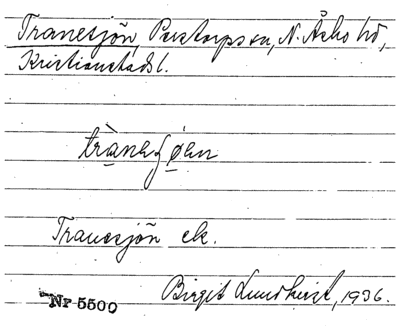 Tranesjön, Perstorps sn, N. Åsbo hd,
Kristianstads l.
trànesøen
Tranesjön ek.
Birgit Lundkvist, 1936.
Nr 5500